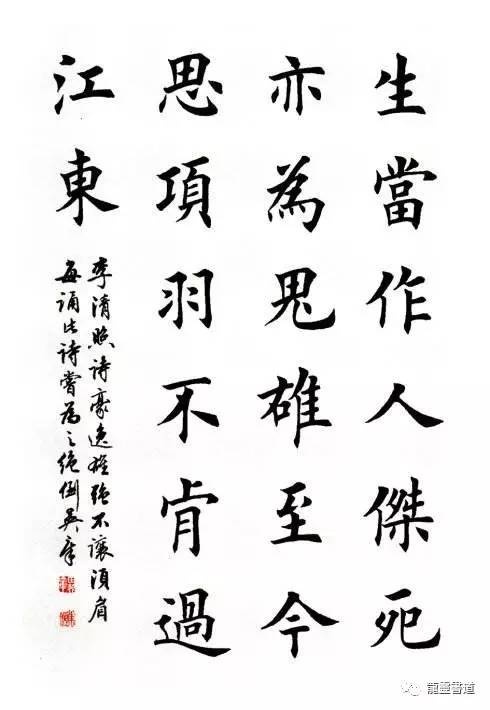 生當作人傑死
亦為鬼雄至今
思項羽不肯過
江東
李清照诗豪逸雄强不讓湏眉
每誦此诗嘗為之绝倒吴
龍靈書道